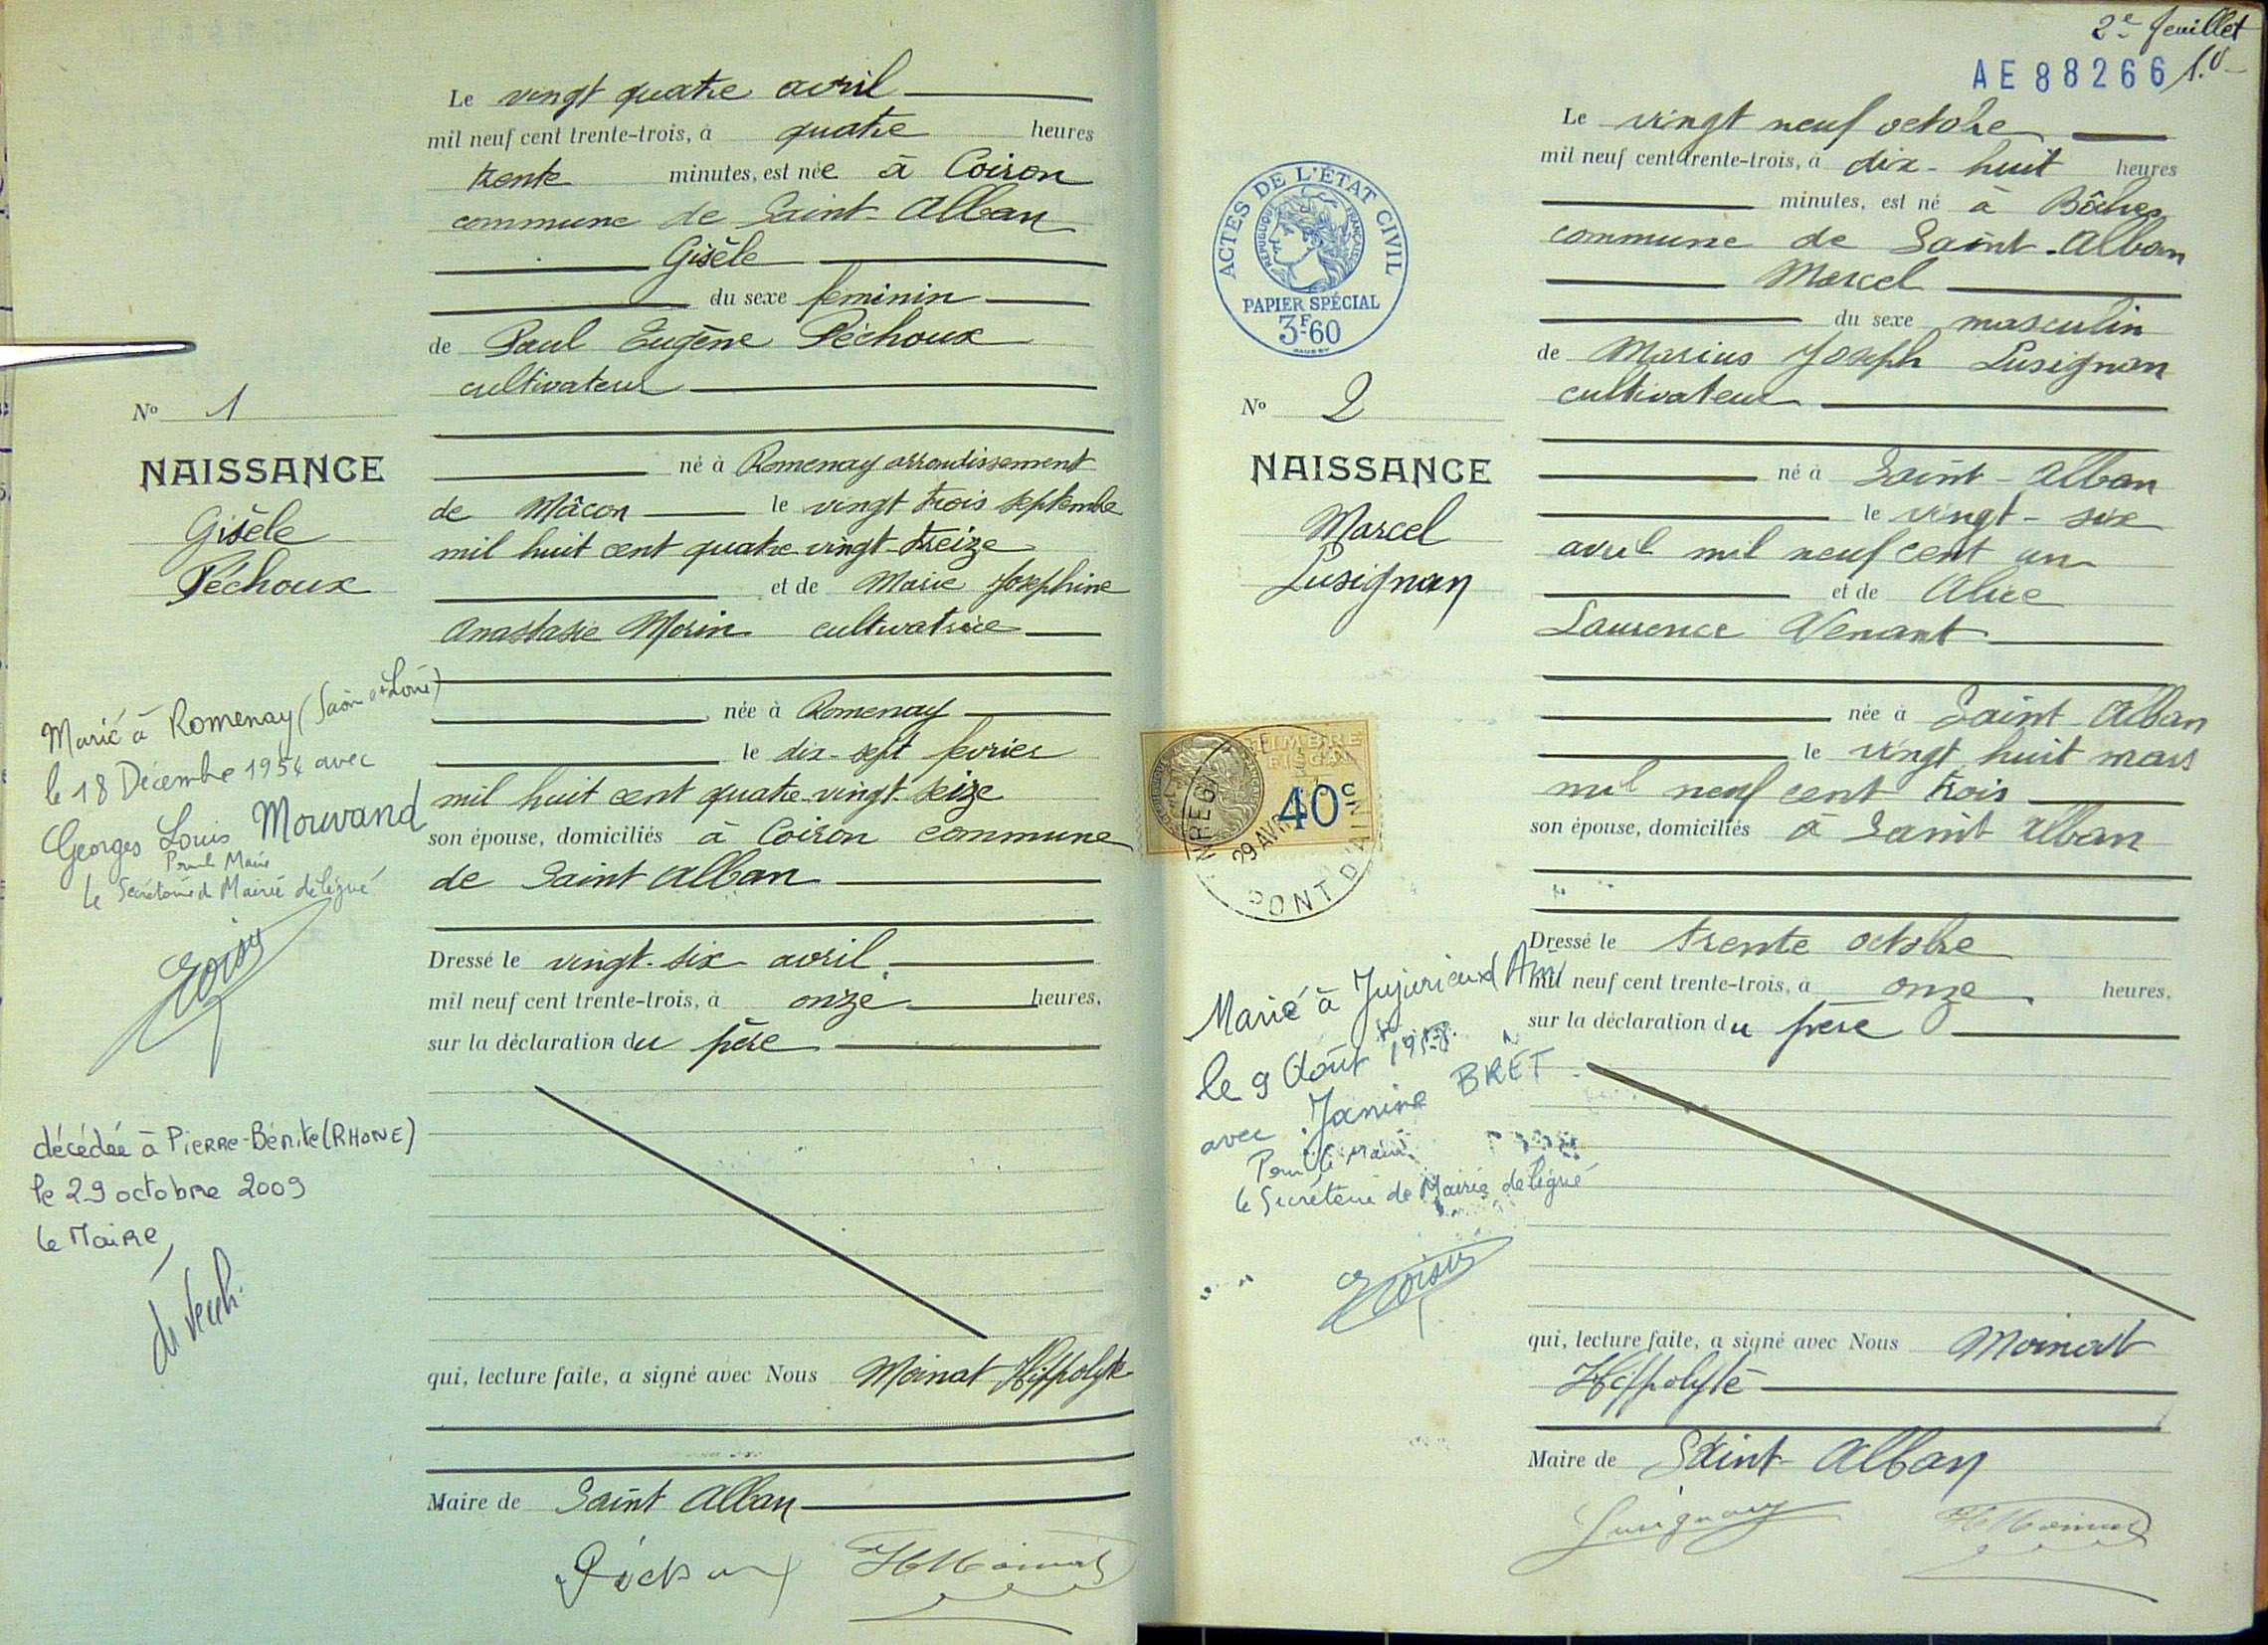 Le vingt quatre avril
mil neuf cent trente-trois, à quatre heures
trente minutes, est née à Coiron
commune de Saint-Alban
Gisèle
du sexe féminin
de Paul Eugène Péchoux
cultivateur
né à Romenay arrondissement
de Mâcon le vingt trois septembre
mil huit cent quatre vingt-treize
et de Marie Joséphine
Anastasie Morin cultivatrice
née à Romenay
le dix-sept février
mil huit cent quatre-vingt-seize
son épouse, domiciliés à Coiron commune
de Saint Alban
Dressé le vingt-six avril
mil neuf cent trente-trois, à onze heures,
sur la déclaration du père
qui, lecture faite, a signé avec Nous Moinat Hippolyte
Maire de Saint Alban
Péchoux HMoinat
No 1
NAISSANCE
Gisèle
Péchoux
Marié à Romenay (Saône et Loire)
le 18 Décembre 1954 avec
Georges Louis Morvand
Pour le Maire
le Secrétaire de Mairie délégué
décédée à Pierre-Bénite (RHONE)
le 29 octobre 2009
le Maire
2e feuillet
AE 88266
Le vingt neuf octobre
mil neuf cent trente-trois, à dix-huit heures
minutes, est né à Bôches
commune de Saint-Alban
Marcel
du sexe masculin
de Marius Joseph Lusignan
cultivateur
né à Saint-Alban
le vingt-six
avril mil neuf cent un
et de Alice
Laurence Venant
née à Saint Alban
le vingt huit mars
mil neuf cent trois
son épouse, domiciliés à Saint Alban
Dressé le trente octobre
mil neuf cent trente-trois, à onze heures,
sur la déclaration du père
qui, lecture faite, a signé avec Nous Moinat
Hippolyte
Maire de Saint Alban
Lusignan HMoinat
ACTES DE L'ÉTAT CIVIL
RÉPUBLIQUE FRANÇAISE
PAPIER SPÉCIAL
3F60
No 2
NAISSANCE
Marcel
Lusignan
TIMBRE
FISCAL
40c
29 AVR
PONT D'AIN
Marié à Jujurieux Ain
le 9 Août
avec Janine BRET
Pour le Maire
le Secrétaire de Mairie délégué